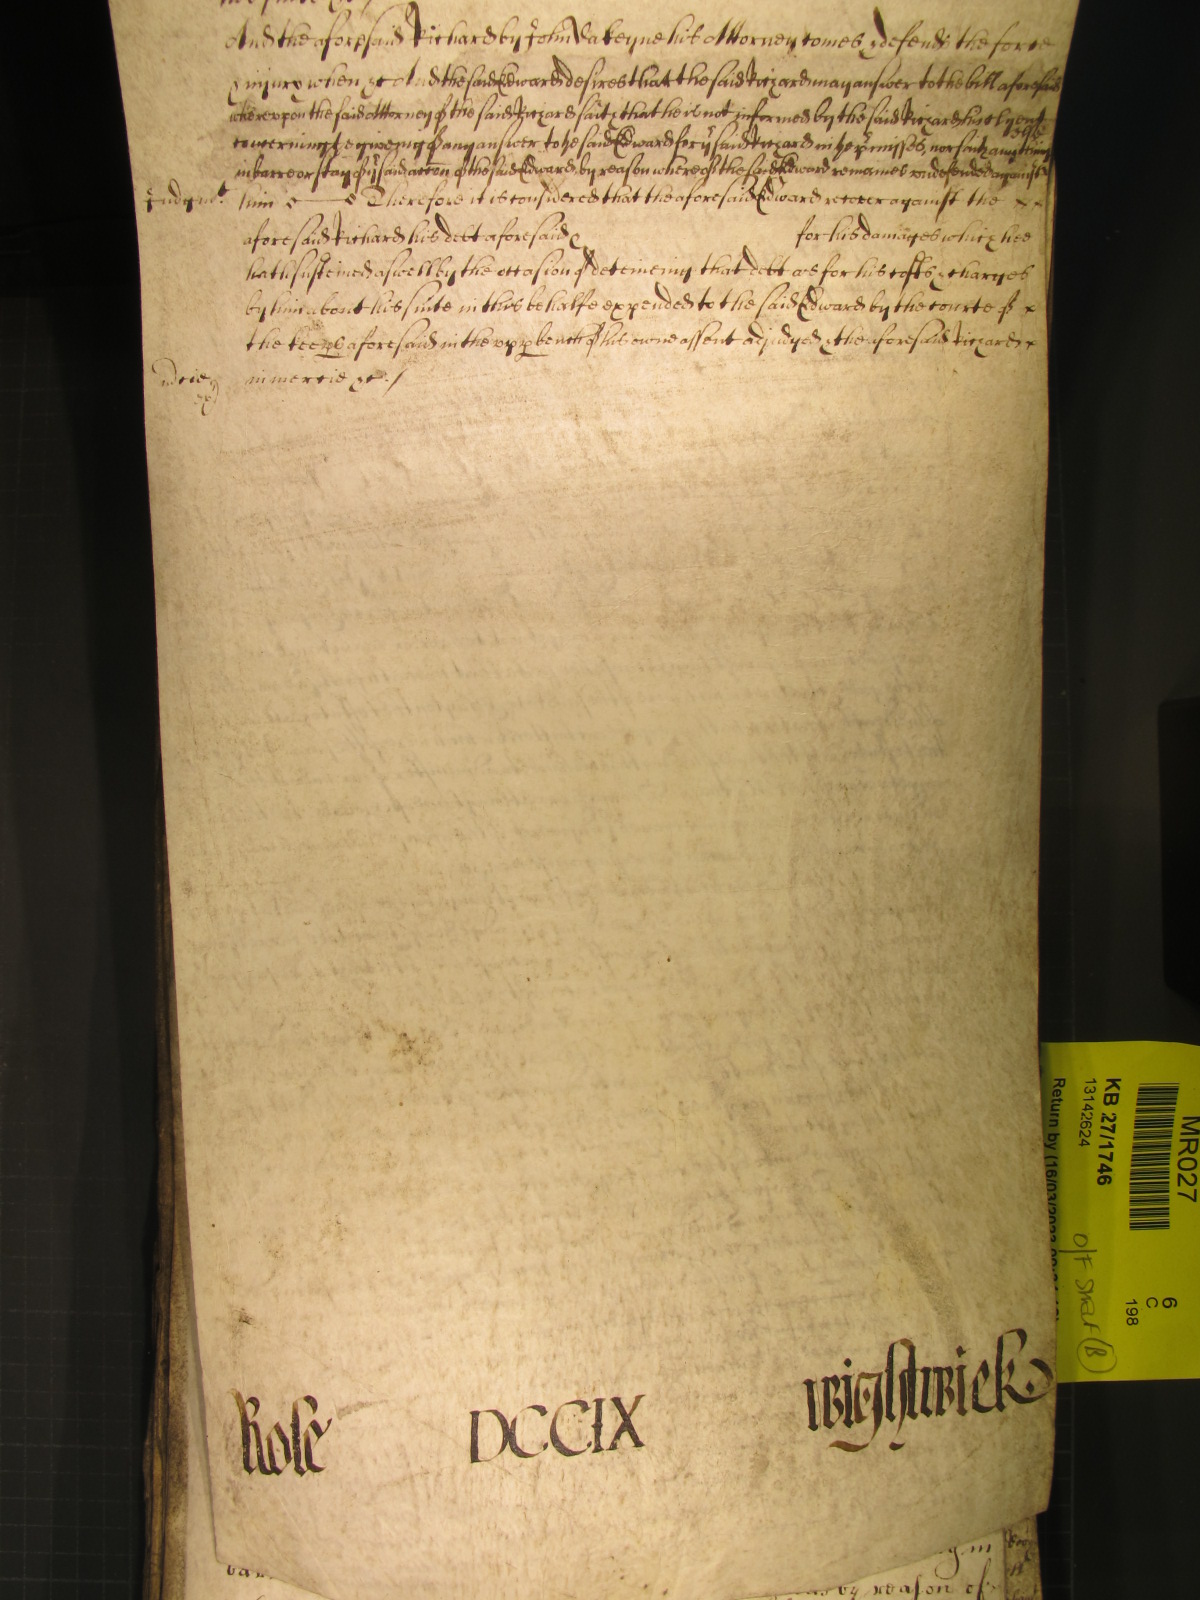 And the aforesaid Richard by John Dakeyne his Attorney comes & defends the force
& injury when &c And the said Edward desires that the said Richard may answer to the bill aforesaid
whereupon the said Attorney of the said Richard saith that he is not informed by the said Richard his Clyent
concerning the giveing of any answer to the said Edward for yͤ said Richard in the pͬmisses, nor saith any thing
else
in barre or stay of yͤ said accon of the said Edward, by reason whereof the said Edward remaines vndefended against
Judgmᵗ him Therefore it is considered that the aforesaid Edward recover against the
aforesaid Richard his debt aforesaid & for his damages which hee
hath susteined aswell by the occasion of deteineing that debt as for his costs & charges
by him about his suite in this behalfe expended to the said Edward by the courte of
the keeps aforesaid in the vpp bench of his owne assent adjudged & the aforesaid Richard
mcie in mercie &c /
Rolle DCCIX Wightwick
MR027
KB 27/1746
13142624
Return by (16/03/2023
6
C
198
O/F
(B)
by reason of